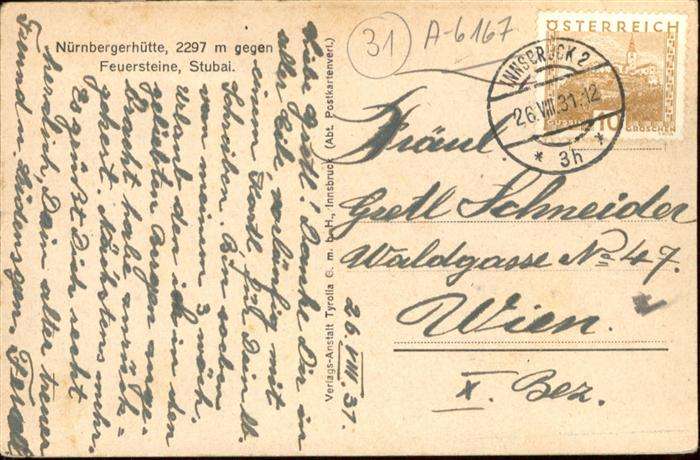 Nürnbergerhütte, 2297 m gegen
Feuersteine, Stubai.
31
A-6167
ÖSTERREICH
GÜSSING
10
GROSCHEN
INNSBRUCK 2
26.VIII.31.12
* 3h *
Verlags-Anstalt Tyrolia G. m. b. H., Innsbruck (Abt. Postkartenverl.)
Fräul.
Gretl Schneider
Waldgasse No 47.
Wien.
X. Bez.
26.VIII.31.
Liebe Gretl! Danke Dir in
aller Eile, vorläufig mit
einem Kartl, für Dein lb.
Schreiben. Bin soeben
von meinem 3 wöch.
Urlaub den ich in den
geliebten Bergen
zurück-
gekehrt. Nächstens mehr.
Es grüßt Dich recht
herzlich, Dein alter treuer
Freund u.